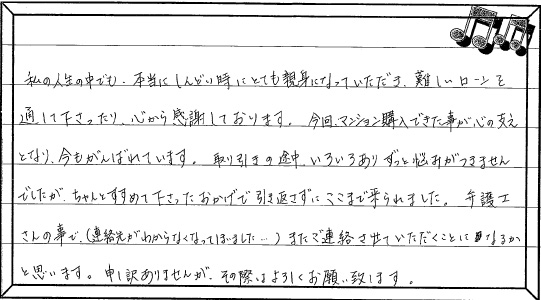 私の人生の中でも、本当にしんどい時にとても親身になっていただき、難しいローンを
通して下さったり、心から感謝しております。今回、マンション購入できた事が心の支え
となり、今もがんばれています。取り引きの途中、いろいろありずっと悩みがつきません
でしたが、ちゃんとすすめて下さったおかげで引き返さずにここまで来られました。弁護士
さんの事で、(連絡先がわからなくなってしまいました…)またご連絡させていただくことになるか
と思います。申し訳ありませんが、その際はよろしくお願い致します。